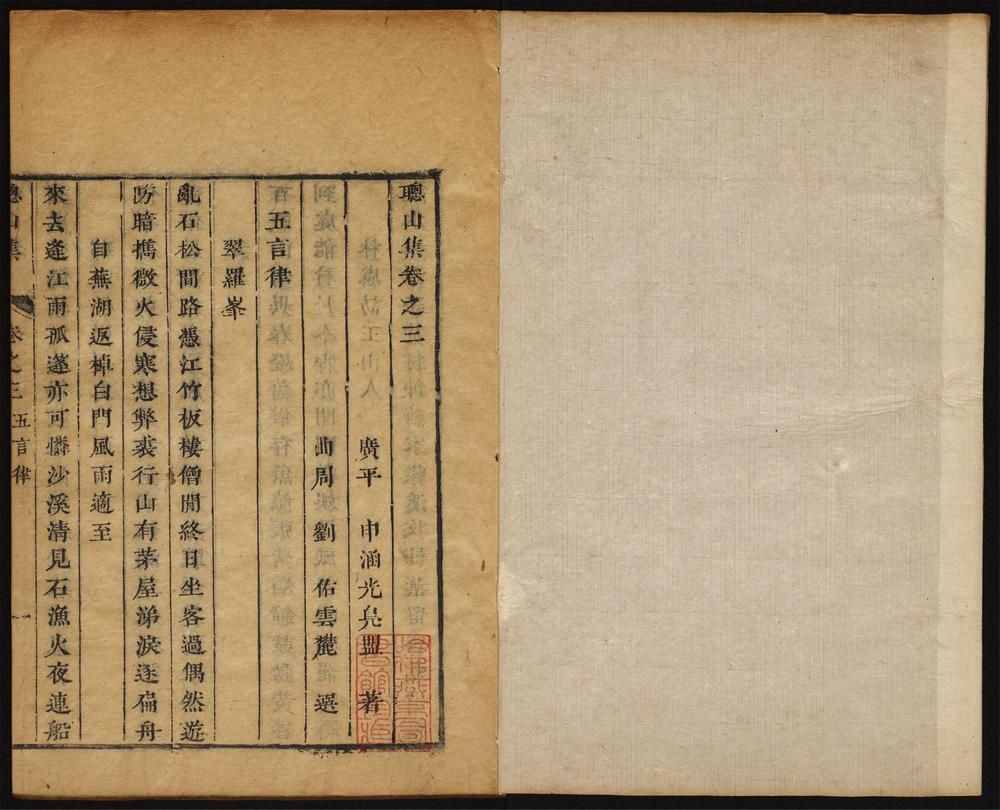 聰山集卷之三
廣平 申涵光鳧盟 著
曲周 劉佑雲麓 選
五言律
翠羅峯
亂石松間路憑江竹板樓僧閒終日坐客過偶然遊
防暗擕微火侵寒想弊裘行山有茅屋涕淚逐扁舟
自蕪湖返棹白門風雨適至
來去逢江雨孤篷亦可憐沙溪清見石漁火夜連船
聰山集 卷之三 五言律 一